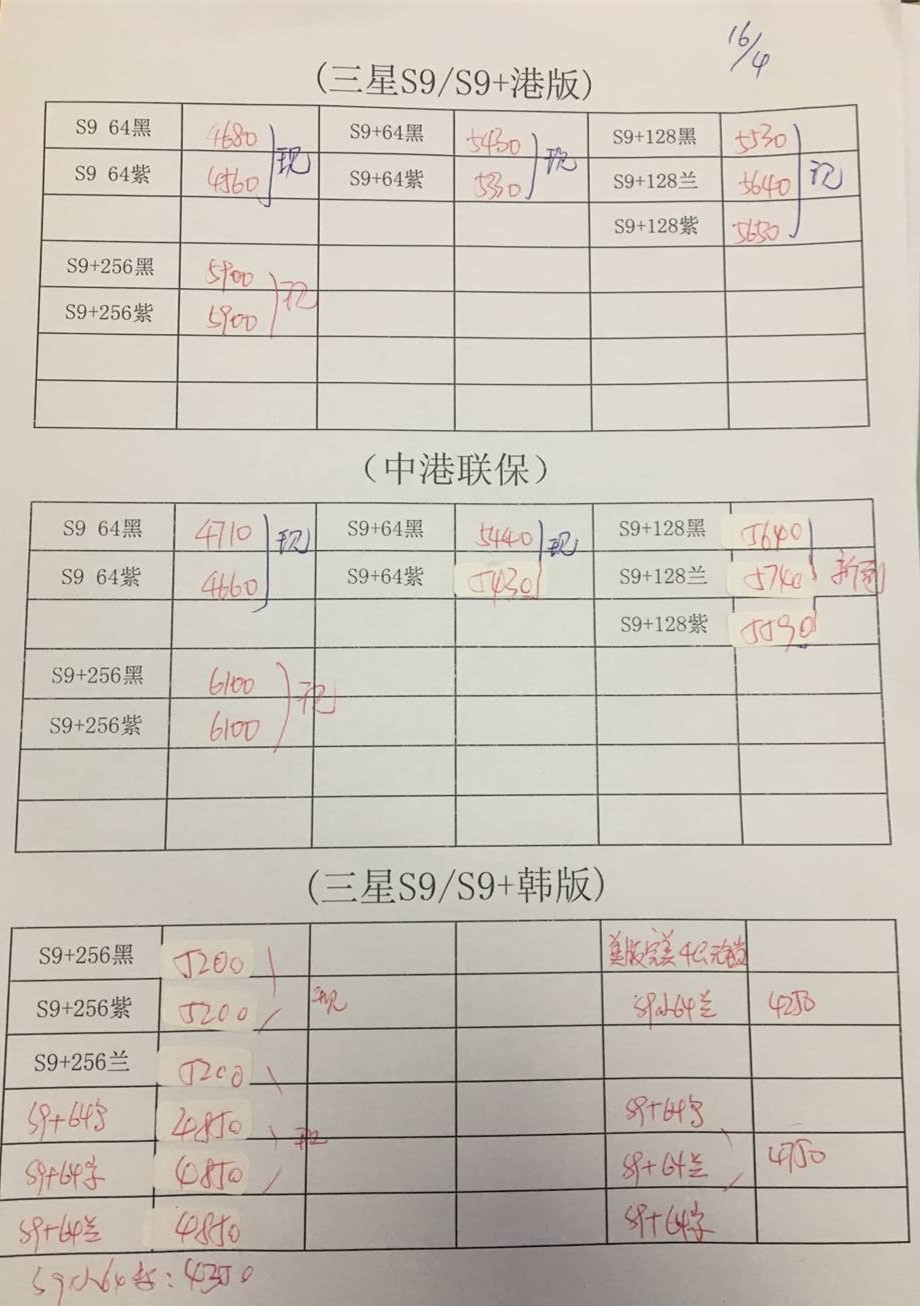 16/4
(三星S9/S9+港版)
S9 64黑 4680 现 S9+64黑 5430 现 S9+128黑 5530 现
S9 64紫 4560 S9+64紫 5330 S9+128兰 5640
S9+128紫 5650
S9+256黑 5900 现
S9+256紫 5900
（中港联保）
S9 64黑 4710 现 S9+64黑 5440 现 S9+128黑 5640
S9 64紫 4660 S9+64紫 5430 S9+128兰 5740
S9+128紫 5590
S9+256黑 6100 现
S9+256紫 6100
(三星S9/S9+韩版)
S9+256黑 5200 美版完美4G无锁
S9+256紫 5200 现 S9小64兰 4250
S9+256兰 5200
S9+64 4850 现 S9+64
S9+64 4850 S9+64兰 4750
S9+64兰 4850 S9+64
S9小64 : 4350